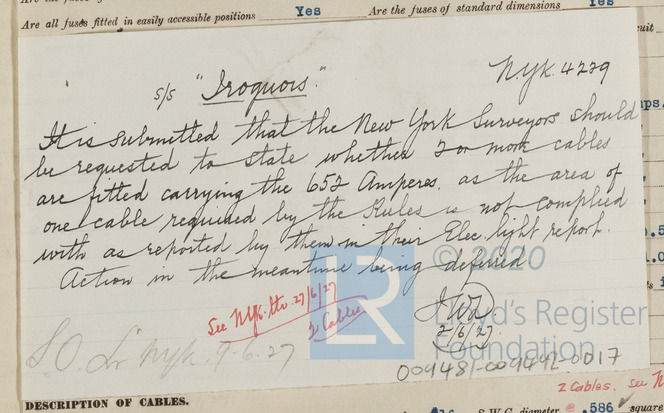 Are all fuses fitted in easily accessible positions Yes Are the fuses of standard dimensions Yes
s/s "Iroquois."
N.Y.K. 4229
It is submitted that the New York Surveyors should
be requested to state whether 2 or more cables
are fitted carrying the 652 Amperes, as the area of
one cable required by the Rules is not complied
with as reported by them in their Elec. light report.
Action in the meantime being deferred
© 2020
LR
Lloyd's Register
Foundation
See N.Yk. ltr 27/6/27
2 Cables
2/6/27
Nyk. 7.6.27
009481-009492-0017
2 Cables. see
DESCRIPTION OF CABLES.
S.W.G. diameter .586 square